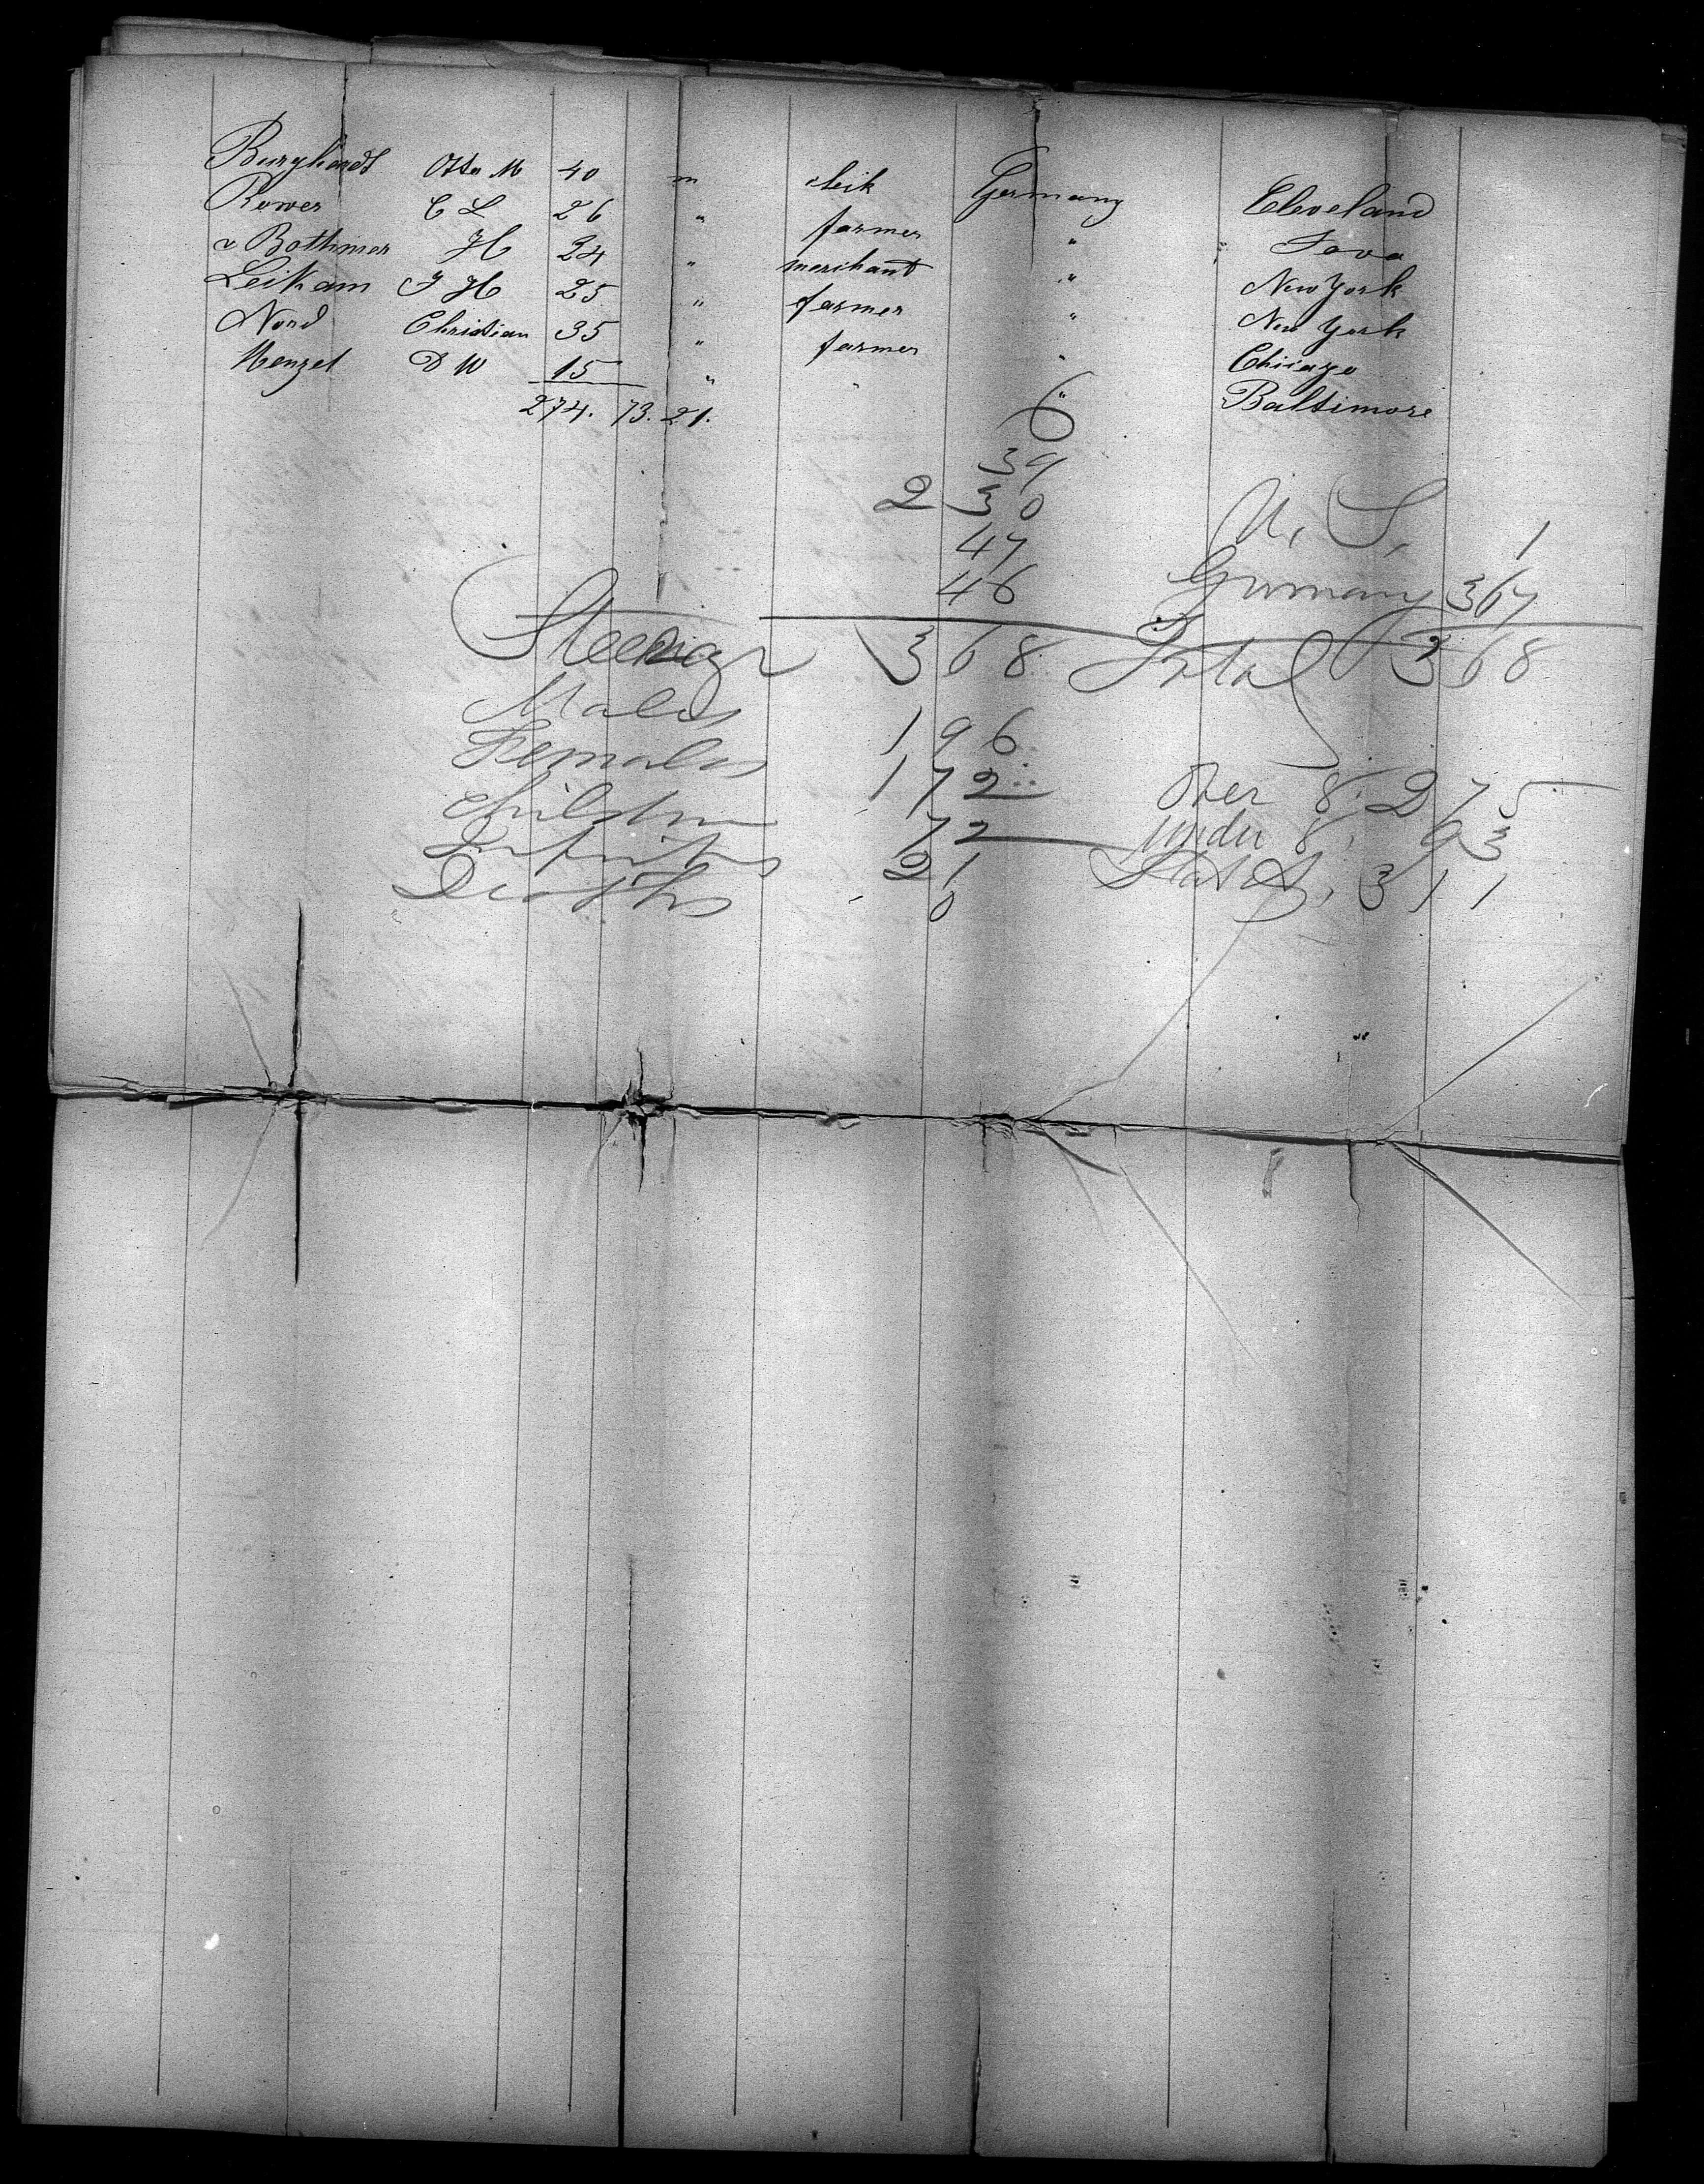 Burghardt Otto M 40 m clerk Germany Cleveland
Rower C L 26 " farmer " Iova
v Bothmer H 24 " merchant " New York
Leikam J H 25 " farmer " New York
Nord Christian 35 " farmer " Chicago
Menzel D W 15 " " " Baltimore
274. 73. 21.
6
39
230
47 U. S. 1
46 Germany 367
Steerage 368 Total 368
Males 196
Females 172 Over 8. 275
Children 72 Under 8. 93
Infants 21 311
Deaths 0